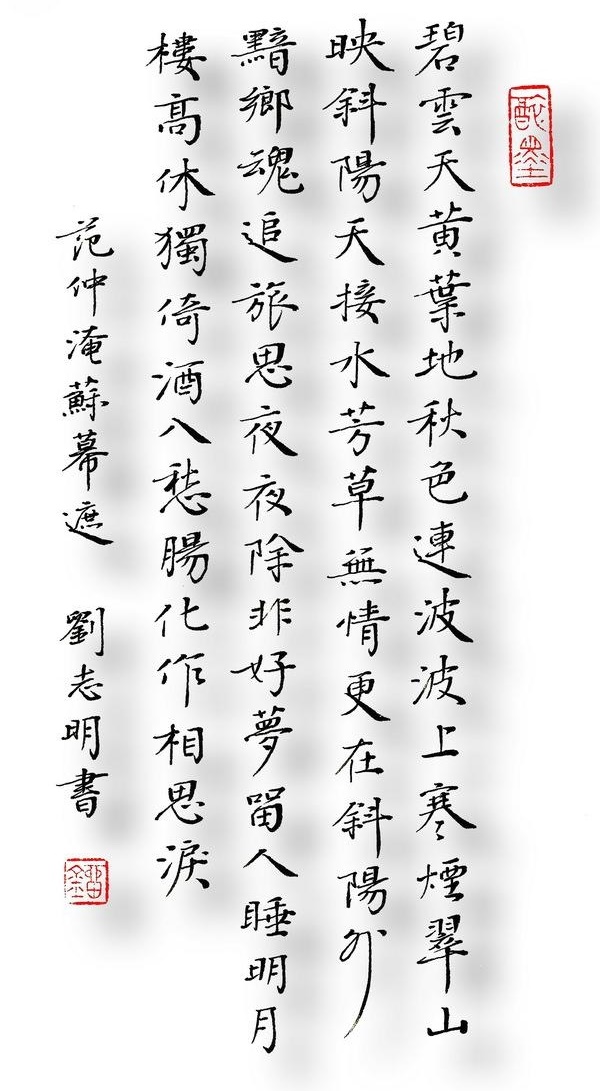 碧雲天黃葉地秋色連波波上寒煙翠山
映斜陽天接水芳草無情更在斜陽外
黯鄉魂追旅思夜夜除非好夢留人睡明月
樓高休獨倚酒入愁腸化作相思淚
范仲淹蘇幕遮 劉志明書